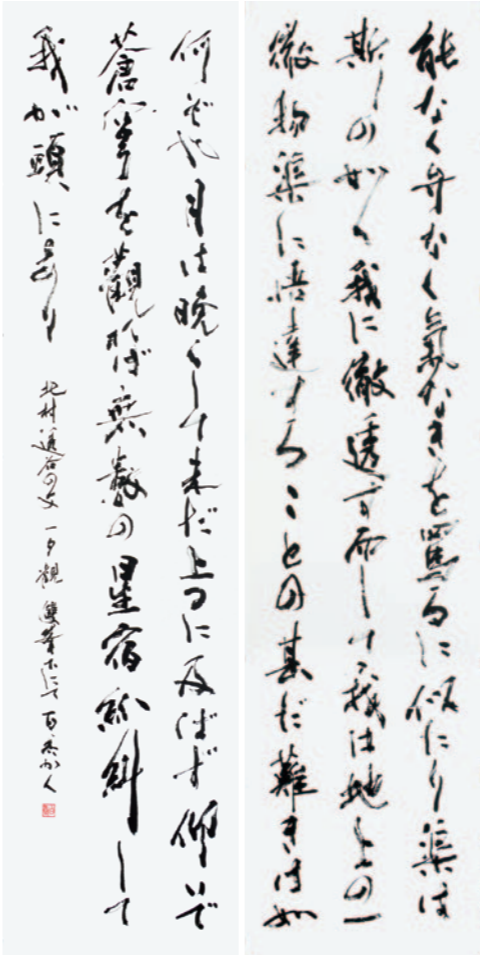 能なく弁なく氣なきを罵るに似たり渠は
斯くの如く我に徹透す而して我は地上の一
微物渠に悟達することの甚だ難きは如
何ぞや月は晩くして未だ上るに及ばず仰いで
蒼穹を觀れば無数の星宿紛糾して
我が頭にあり
北村透谷の文 一夕觀 にて かく